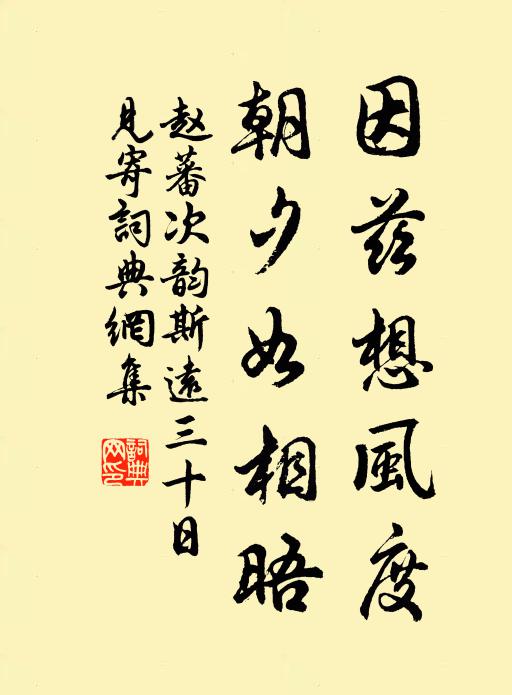 因茲想風度
朝夕如相晤
赵蕃次韵斯遠三十日
見寄詞典網集
詞典网印